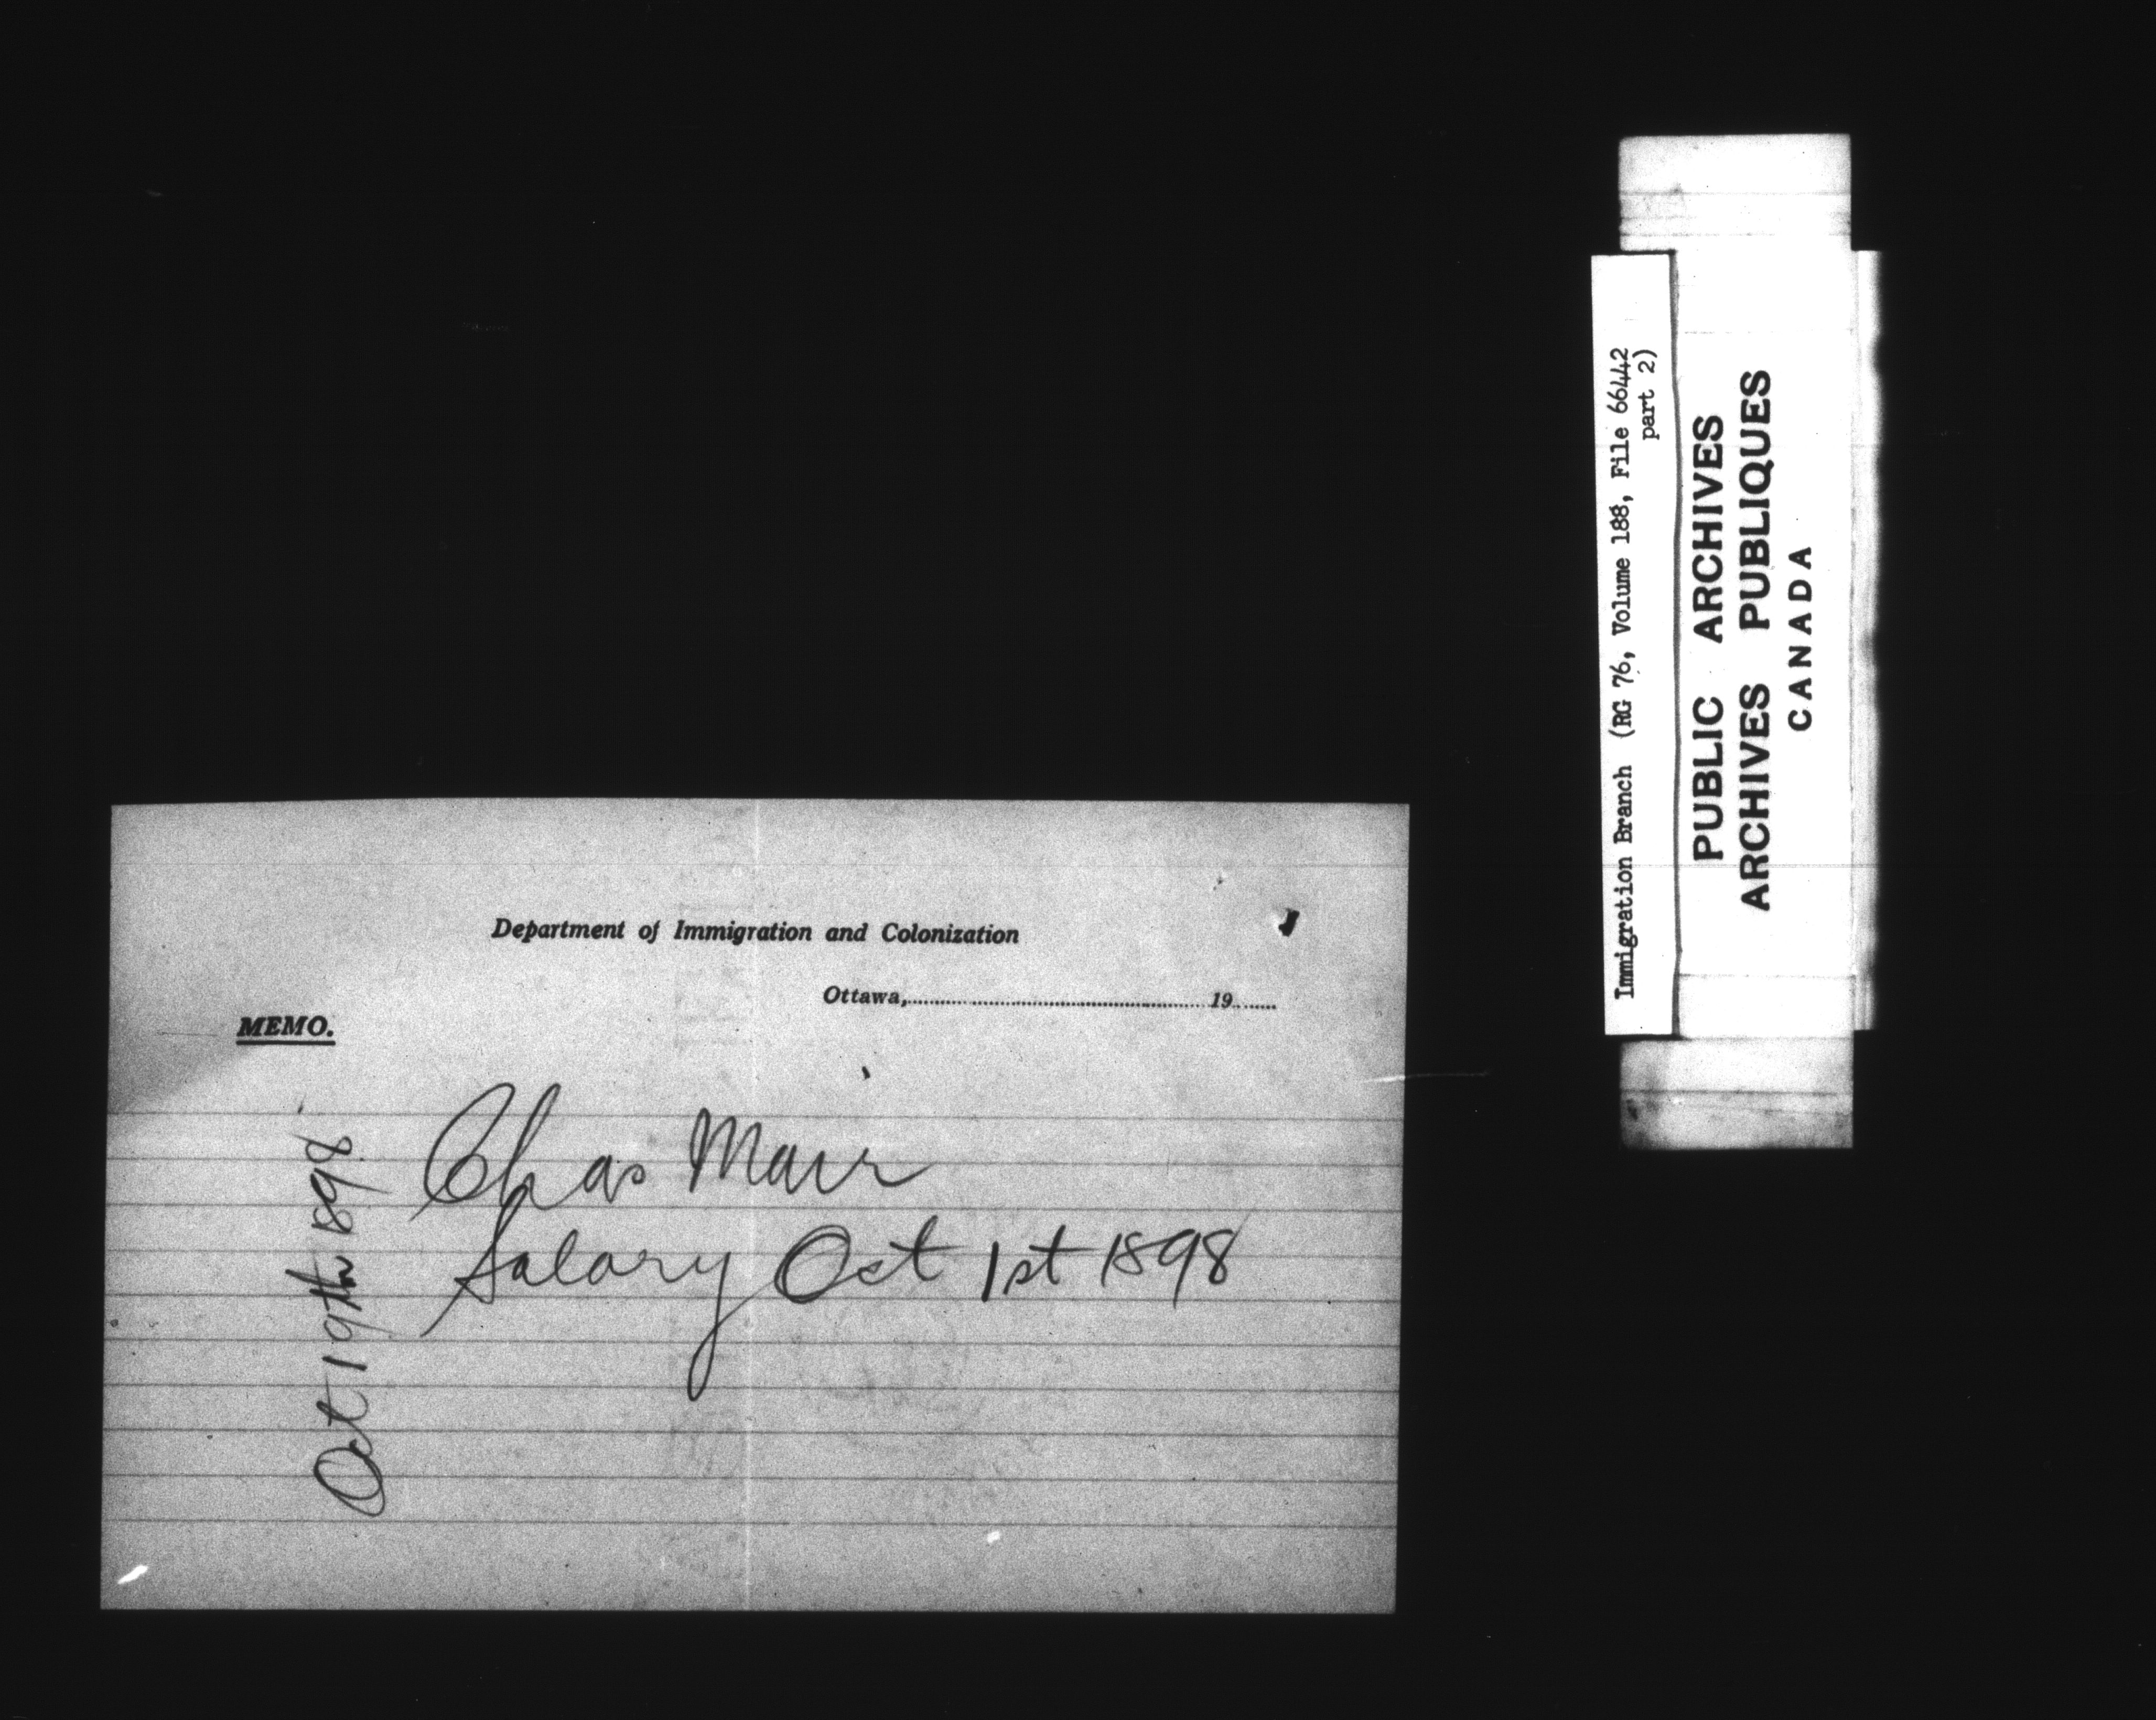 Department of Immigration and Colonization
Ottawa,........................19......
MEMO.
Chas Mair
Salary Oct 1st 1898
Oct 19th 1898
Immigration Branch (RG 76, Volume 188, File 66442
part 2)
PUBLIC ARCHIVES
ARCHIVES PUBLIQUES
CANADA